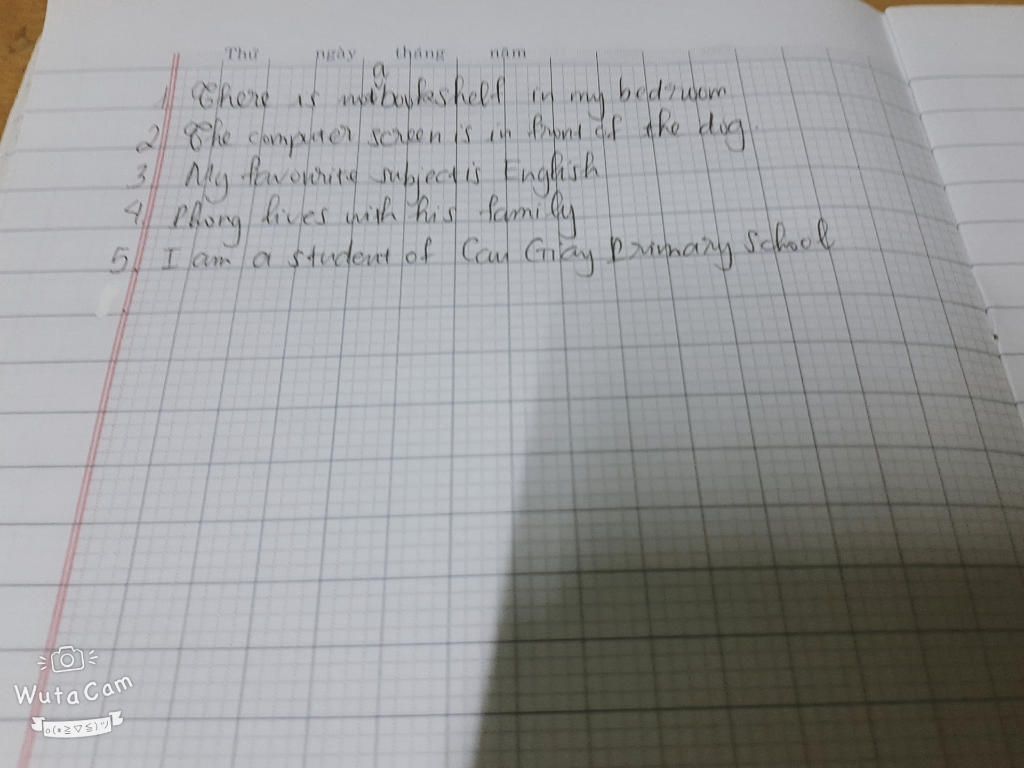 Thứ ngày tháng năm
a
1 There is bookshelf in my bedroom
2 The computer screen is in front of the dog.
3, My favourite subject is English
4, Phong lives with his family
5, I am a student of Cau Giay Primary School
WutaCam
o(*≧▽≦)ツ